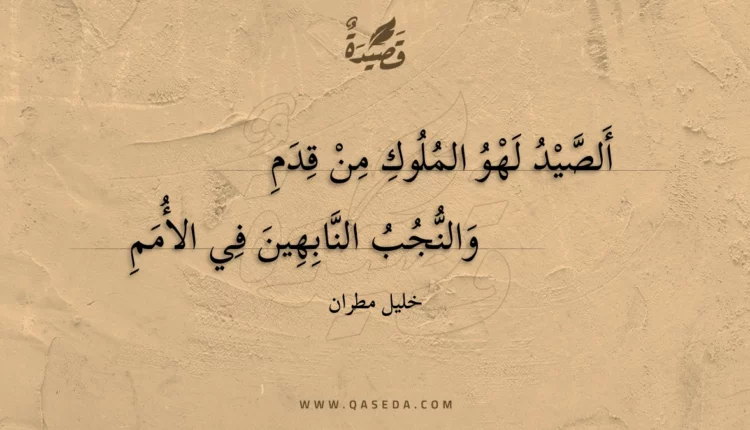 قَصِيْدَةٌ
أَلصَّيْدُ لَهْوُ المُلُوكِ مِنْ قِدَمِ
وَالنُّجُبُ النَّابِهِينَ فِي الأُمَمِ
خليل مطران
WWW.QASEDA.COM